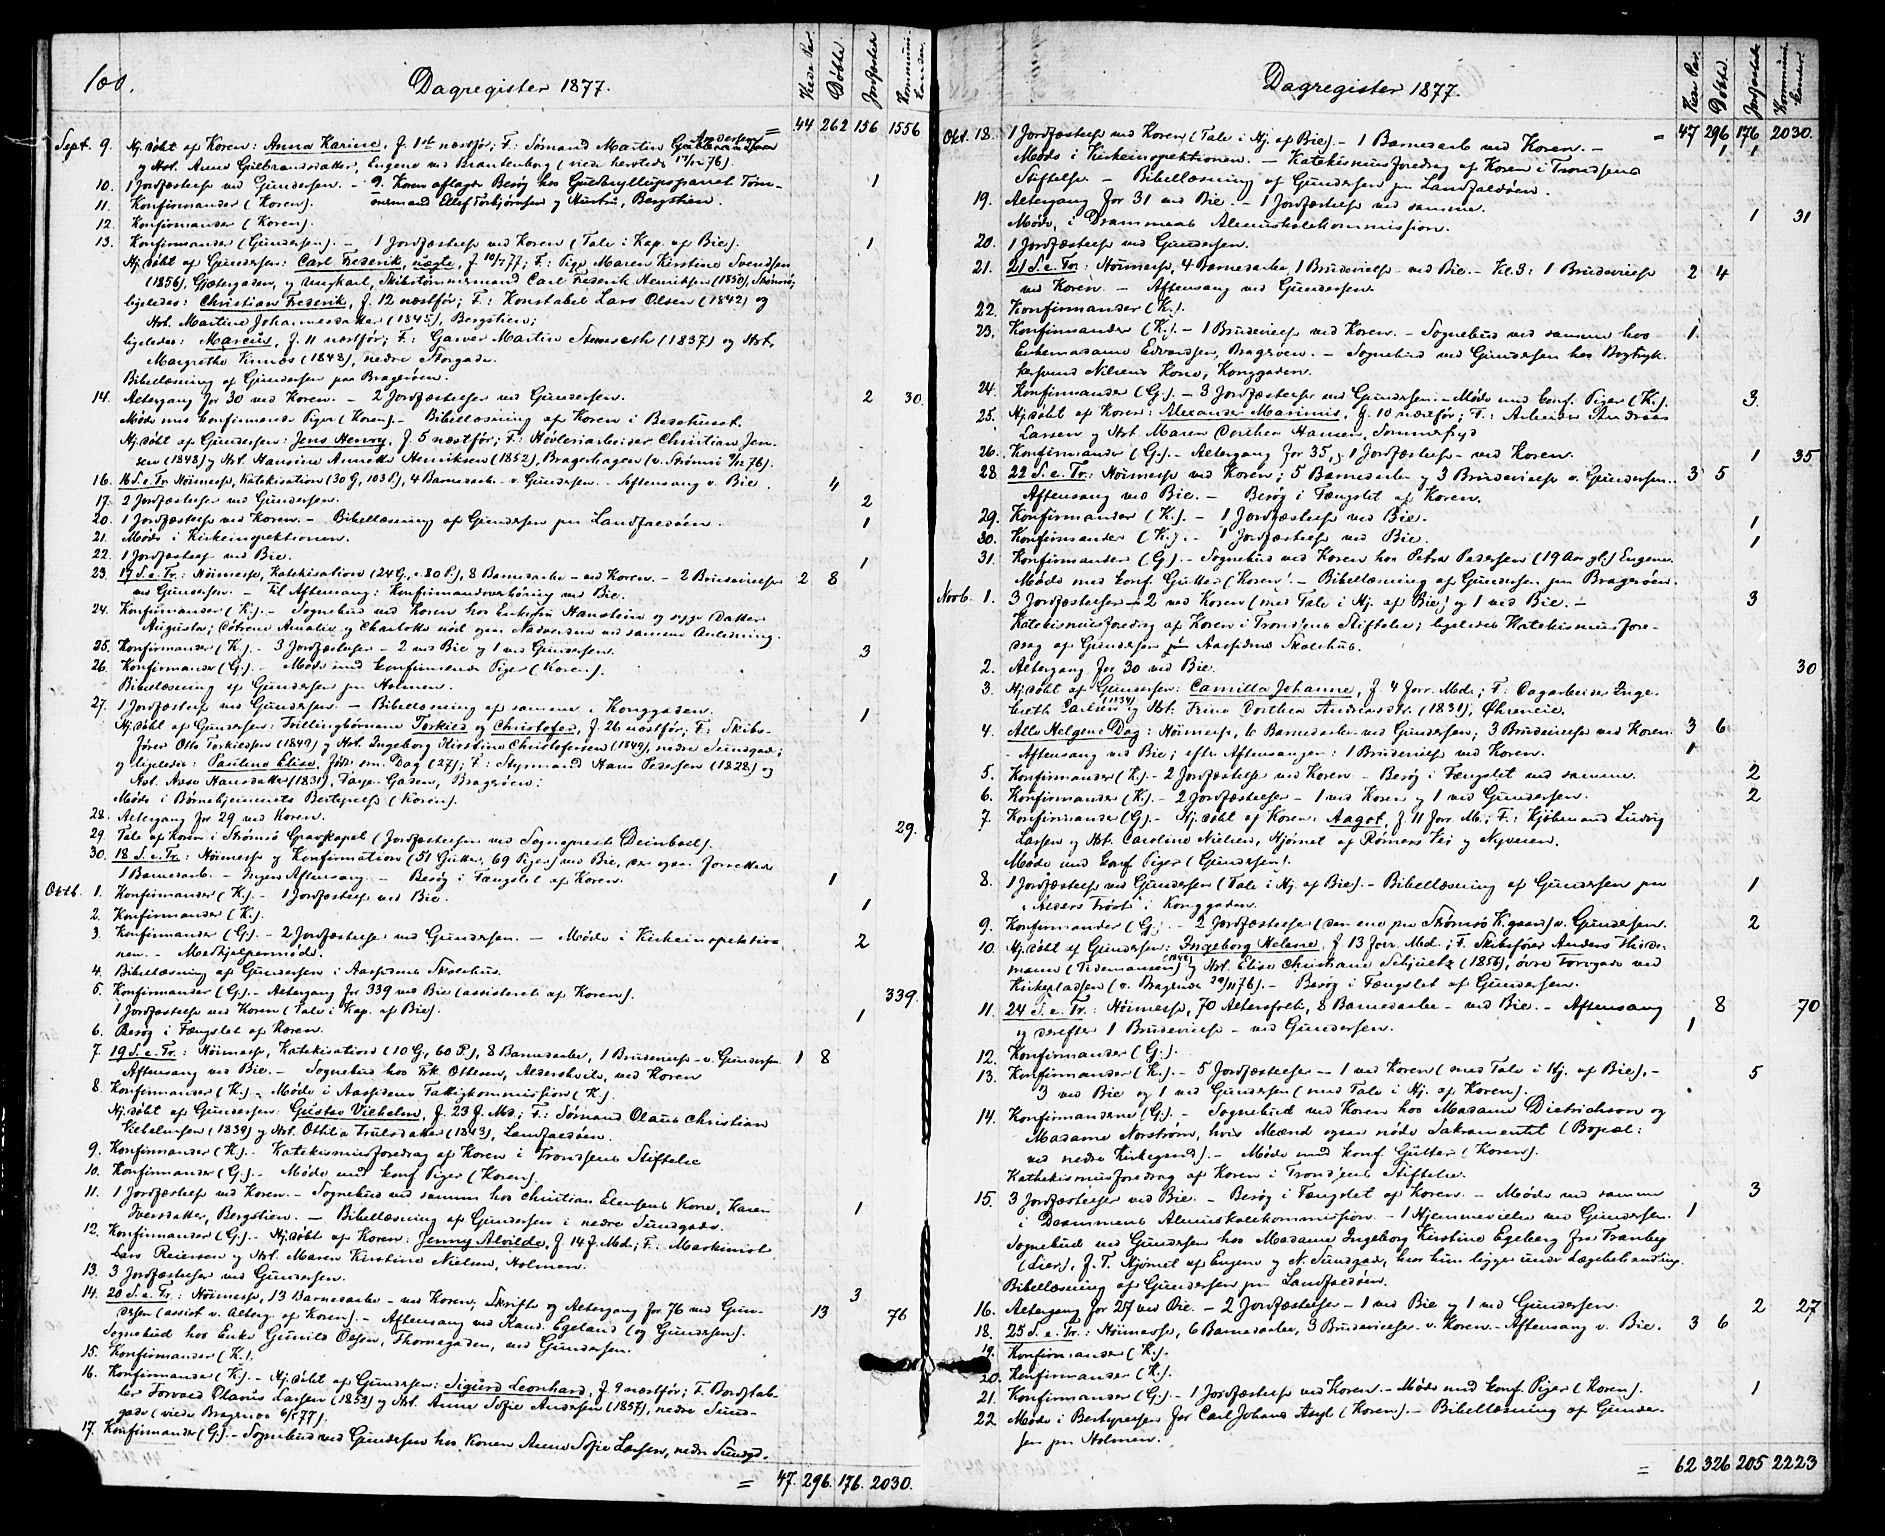 100.
Dagregister 1877.
Viede Par.
Døbte.
Jordfæstede
Kommunicanter.
= 44 262 156 1556
Sept. 9. Hj.døbt af Koren: Anna Karine, f. 1ste næstfør; F: Sømand Martin Andersen
og Hst. Anne Gulbrandsdatter, Eugene ved Brantenborg (viede hersteds 17/12 76).
10. 1 Jordfæstelse ved Gundersen. – 9. Koren aflagde Besøg hos Guldbryllupsparret Tøm- 1
11. Konfirmander (Koren). mermand Ellef Torbjørnsen og Hustru, Bergstien.
12. Konfirmander (Koren).
13. Konfirmander (Gundersen). – 1 Jordfæstelse ved Koren (Tale i Kap. af Bie). 1
Hj.døbt af Gundersen: Carl Frederik, uægte, f. 10/7 77; F: Pige Maren Kirstine Svendsen
(1856), Gjetergaden, og Ungkarl, Skibstømmermand Carl Frederik Henriksen (1850), Strømsø;
ligeledes: Christian Frederik, f. 12 næstfør; F: Konstabel Lars Olsen (1842) og
Hst. Martine Johannesdatter (1845), Bergstien;
ligeledes: Marcus, f. 11 næstfør; F: Garver Martin Stenseth (1837) og Hst.
Margrethe Knive (1848), nedre Storgade.
Bibellæsning af Gundersen paa Bragerøen.
14. Altergang for 30 ved Koren. – 2 Jordfæstelser ved Gundersen. 2 30.
Møde med konfirmerede Piger (Koren). – Bibellæsning af Koren i Bedehuset.
Hj.døbt af Gundersen: Jens Henry, f. 5 næstfør; F: Høvleriarbeider Christian Jen-
sen (1848) og Hst. Hansine Annette Henriksen (1852), Bragerhagen (v. Strømsø 9/12 76).
16. 16 S. e. Tr. Høimesse, Katekisation (30 G., 103 P.), 4 Barnedaabe v. Gundersen. – Aftensang v. Bie. 4
17. 2 Jordfæstelser ved Gundersen. 2
20. 1 Jordfæstelse ved Koren. – Bibellæsning af Gundersen paa Landfaldøen. 1
21. Møde i Kirkeinspektionen.
22. 1 Jordfæstelse ved Bie. 1
23. 17 S. e. Tr.: Høimesse, Katekisation (24 G., 80 P.), 8 Barnedaabe – ved Koren. – 2 Brudevielser 2 8
ved Gundersen. – Til Aftensang: Konfirmandoverhøring ved Bie.
24. Konfirmander (K.). – Sognebud ved Koren hos Enkefru Hanstein og syge Datter
Augusta; Døtrene Amalie og Charlotte nød ogsaa Nadverden ved samme Anledning.
25. Konfirmander (K.). – 3 Jordfæstelser – 2 ved Bie og 1 ved Gundersen. 3
26. Konfirmander (G.). – Møde med konfirmerede Piger (Koren).
Bibellæsning af Gundersen paa Holmen.
27. 1 Jordfæstelse ved Gundersen – Bibellæsning af samme i Konggaden. 1
Hj.døbt af Gundersen: Tvillingbørnene Torkild og Christofer, f. 26 næstfør; F: Skibs-
fører Otto Torkildsen (1849) og Hst. Ingeborg Kirstine Christofersen (1849), nedre Sundgade;
og ligeledes: Pauline Elise, født sm. Dag (27); F: Styrmand Hans Pedersen (1828) og
Hst. Aase Hansdatter (1831), Bragerøen.
Møde i Børnehjemmets Bestyrelse (Koren).
28. Altergang for 29 ved Koren. 29.
29. Tale af Koren i Strømsø Gravkapel (Jordfæstelsen ved Sognepræst Deinboll).
30. 18 S. e. Tr.: Høimesse og Konfirmation (51 Gutter, 69 Piger) ved Bie, der ogsaa forrettede
1 Barnedaab. – Ingen Aftensang. – Besøg i Fængslet af Koren. 1
Oktb. 1. Konfirmander (K.). – 1 Jordfæstelse ved Bie. 1
2. Konfirmander (K.).
3. Konfirmander (G.). – 2 Jordfæstelser ved Gundersen. – Møde i Kirkeinspektio- 2
nen. – Medhjælpermøde.
4. Bibellæsning af Gundersen i Aassidens Skolehus.
5. Konfirmander (G.). – Altergang for 339 ved Bie (assisteret af Koren). 339.
1 Jordfæstelse ved Koren (Tale i Kap. af Bie). 1
6. Besøg i Fængslet af Koren.
7. 19 S. e. Tr.: Høimesse, Katekisation (10 G., 60 P.), 8 Barnedaabe, 1 Brudevielse v. Gundersen 1 8
Aftensang ved Bie. – Sognebud hos Frk. Ottesen, Aldershvile, ved Koren
8. Konfirmander (K.). – Møde i Aassidens Fattigkommission (K.).
Hj.døbt af Gundersen: Gustav Vilhelm, f. 23 f. Md.; F: Sømand Olaus Christian
Vilhelmsen (1839) og Hst. Othilia Trulsdatter (1843), Landfaldøen.
9. Konfirmander (K.). Katekismusforedrag af Koren i Trondsens Stiftelse
10. Konfirmander (G.). – Møde med konf. Piger (Koren).
11. 1 Jordfæstelse ved Koren. – Sognebud ved samme hos Christian Elensens Kone, Karen 1
Iversdatter, Bergstien. – Bibellæsning af Gundersen i nedre Sundgade.
12. Konfirmander (G.). – Hj.døbt af Koren: Jenny Alvilde, f. 14 f. Md.; F: Maskinist
Lars Reiersen og Hst. Maren Kirstine Nielsen, Holmen.
13. 3 Jordfæstelser ved Gundersen. 3
14. 20 S. e. Tr.: Høimesse, 13 Barnedaabe – ved Koren; Skrifte og Altergang for 76 ved Gun- 13 76
dersen (assist. v. Alterg. af Koren). – Aftensang ved Kand. Egeland (og Gundersen).
Sognebud hos Enke Gunild Olsen, Thornegaden, ved Gundersen.
15. Konfirmander (K.).
16. Konfirmander (K.). – Hj.døbt af Gundersen: Sigurd Leonhard, f. 9 næstfør; F. Bordstab-
ler Torvald Olavus Larsen (1852) og Hst. Anne Sofie Andersen (1857), nedre Sund-
gade (viede Bragernes 77).
17. Konfirmander (G.). – Sognebud ved Gundersen hos Konen Anne Sofie Larsen, nedre Sundgd.
= 47. 296. 176. 2030.
Dagregister 1877.
Viede Par.
Døbte.
Jordfæstede
Kommunicanter.
= 47 296 176 2030.
Okt. 18. 1 Jordfæstelse ved Koren (Tale i Hj. af Bie). – 1 Barnedaab ved Koren. – 1 1
Møde i Kirkeinspektionen. – Katekismusforedrag af Koren i Trondsens
Stiftelse – Bibellæsning af Gundersen paa Landfaldøen.
19. Altergang for 31 ved Bie. – 1 Jordfæstelse ved samme. 1 31
Møde i Drammens Almueskolekommission.
20. 1 Jordfæstelse ved Gundersen.
21. 21 S. e. Tr.: Høimesse, 4 Barnedaabe, 1 Brudevielse ved Bie. – Kl. 3: 1 Brudevielse 2 4
ved Koren. – Aftensang ved Gundersen.
22. Konfirmander (K.).
23. Konfirmander (K.). – 1 Brudevielse ved Koren. – Sognebud ved samme hos 1.
Enkemadame Edvardsen, Bragerøen. – Sognebud ved Gundersen hos Bogtryk-
kersvend Nilsens Kone, Konggaden.
24. Konfirmander (G.). – 3 Jordfæstelser ved Gundersen. – Møde med konf. Piger (K.). 3.
25. Hj.døbt af Koren: Alexander Marinius, f. 10 næstfør; F.: Arbeider Andreas
Larsen og Hst. Maren Dorthea Hansen, Sommerfryd
26. Konfirmander (G.). – Altergang for 35, og 1 Jordfæstelse – ved Koren. 1 35
28. 22 S. e. Tr.: Høimesse ved Koren; 5 Barnedaabe og 3 Brudevielser v. Gundersen. 3 5
Aftensang ved Bie. – Besøg i Fængslet af Koren.
29. Konfirmander (K.). – 1 Jordfæstelse ved Bie. 1
30. Konfirmander (K.). – 1 Jordfæstelse ved Bie. 1
31. Konfirmander (G.). – Sognebud ved Koren hos Petra Pedersen (19 Aar gl.) Eugene.
Møde med konf. Gutter (Koren). – Bibellæsning af Gundersen paa Bragerøen.
Novb. 1. 3 Jordfæstelser – 2 ved Koren (med Tale i Hj. af Bie) og 1 ved Bie. – 3
Katekismusforedrag af Koren i Trondsens Stiftelse; ligeledes Katekismusfore-
drag af Gundersen paa Aassidens Skolehus.
2. Altergang for 30 ved Bie. 30
3. Hj.døbt af Gundersen: Camilla Johanne, f. 4 forr. Md.; F: Dagarbeider Inge-
breth Carlsen (1834) og Hst. Trine Dorthea Andreasdtr. (1831), Øhreneie.
4. Alle Helgens Dag: Høimesse, 6 Barnedaabe ved Gundersen; 3 Brudevielser ved Koren. 3 6
Aftensang ved Bie; efter Aftensangen: 1 Brudevielse ved Koren. 1
5. Konfirmander (K.). – 2 Jordfæstelser ved Koren – Besøg i Fængslet ved samme. 2
6. Konfirmander (K.). – 2 Jordfæstelser – 1 ved Koren og 1 ved Gundersen. 2
7. Konfirmander (G.). – Hj.døbt af Koren: Aagot, f. 11 forr. M.; F: Kjøbmand Ludvig
Larsen og Hst. Caroline Nielsen, Hjørnet af Rømers Vei og Nyveien.
Møde med konf. Piger (Gundersen).
8. 1 Jordfæstelse ved Gundersen (Tale i Hj. af Bie). – Bibellæsning af Gundersen paa 1
"Alders Trøst" i Konggaden.
9. Konfirmander (G.). – 2 Jordfæstelser (den ene paa Strømsø K.gaard) v. Gundersen. 2
10. Hj.døbt af Gundersen: Ingeborg Helene, f. 13 forr. Md.; F. Skibsfører Anders Thide-
mann (Tidemansen) og Hst. Elise Christiane Schjueltz (1856), øvre Torvgade ved
Kirkepladsen (v. Bragernes 76). – Besøg i Fængslet af Gundersen.
11. 24 S. e. Tr.: Høimesse, 70 Altersfolk, 8 Barnedaabe – ved Bie. – Aftensang 8 70
og derefter 1 Brudevielse – ved Gundersen. 1
12. Konfirmander (G.).
13. Konfirmander (K.). – 5 Jordfæstelser – 1 ved Koren (med Tale i Hj. af Bie), – 5
3 ved Bie og 1 ved Gundersen (med Tale i Hj. af Koren).
14. Konfirmanderne (G.). – Sognebud ved Koren hos Madame Dietrichson og
Madame Norstrøm, hvis Mænd ogsaa nøde Sakramentet (Bopæl:
ved nedre Kirkegaard). – Møde med konf. Gutter (Koren).
Kathekismusforedrag af Koren i Trondsens Stiftelse.
15. 3 Jordfæstelser ved Bie. – Besøg i Fængslet af Koren. – Møde ved samme 3
i Drammens Almueskolekommission. – 1 Hjemmevielse ved Gundersen. 1
Sognebud ved Gundersen hos Madame Ingeborg Kirstine Egeberg fra Tranby
(Lier), f. T. Hjørnet af Eugene og N. Sundgade, hvor hun ligger under Lægebehandling.
Bibellæsning af Gundersen paa Landfaldøen.
16. Altergang for 27 ved Bie. – 2 Jordfæstelser – 1 ved Bie og 1 ved Gundersen. 2 27
18. 25 S. e. Tr.: Høimesse, 6 Barnedaabe, 3 Brudevielser v. Koren. – Aftensang v. Bie. 3 6
19. Konfirmander (K.).
20. Konfirmander (K.).
21. Konfirmander (G.). – 1 Jordfæstelse ved Koren. – Møde med konf. Piger (Koren). 1
22. Møde i Bestyrelsen for Carl Johans Asyl (Koren). – Bibellæsning af Gunder-
sen paa Holmen.
= 62 326 205 2223